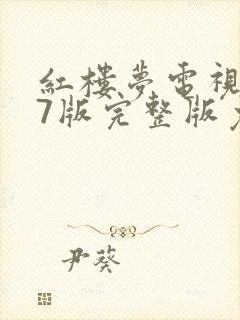 紅樓夢電視
7版完整版
尹葵